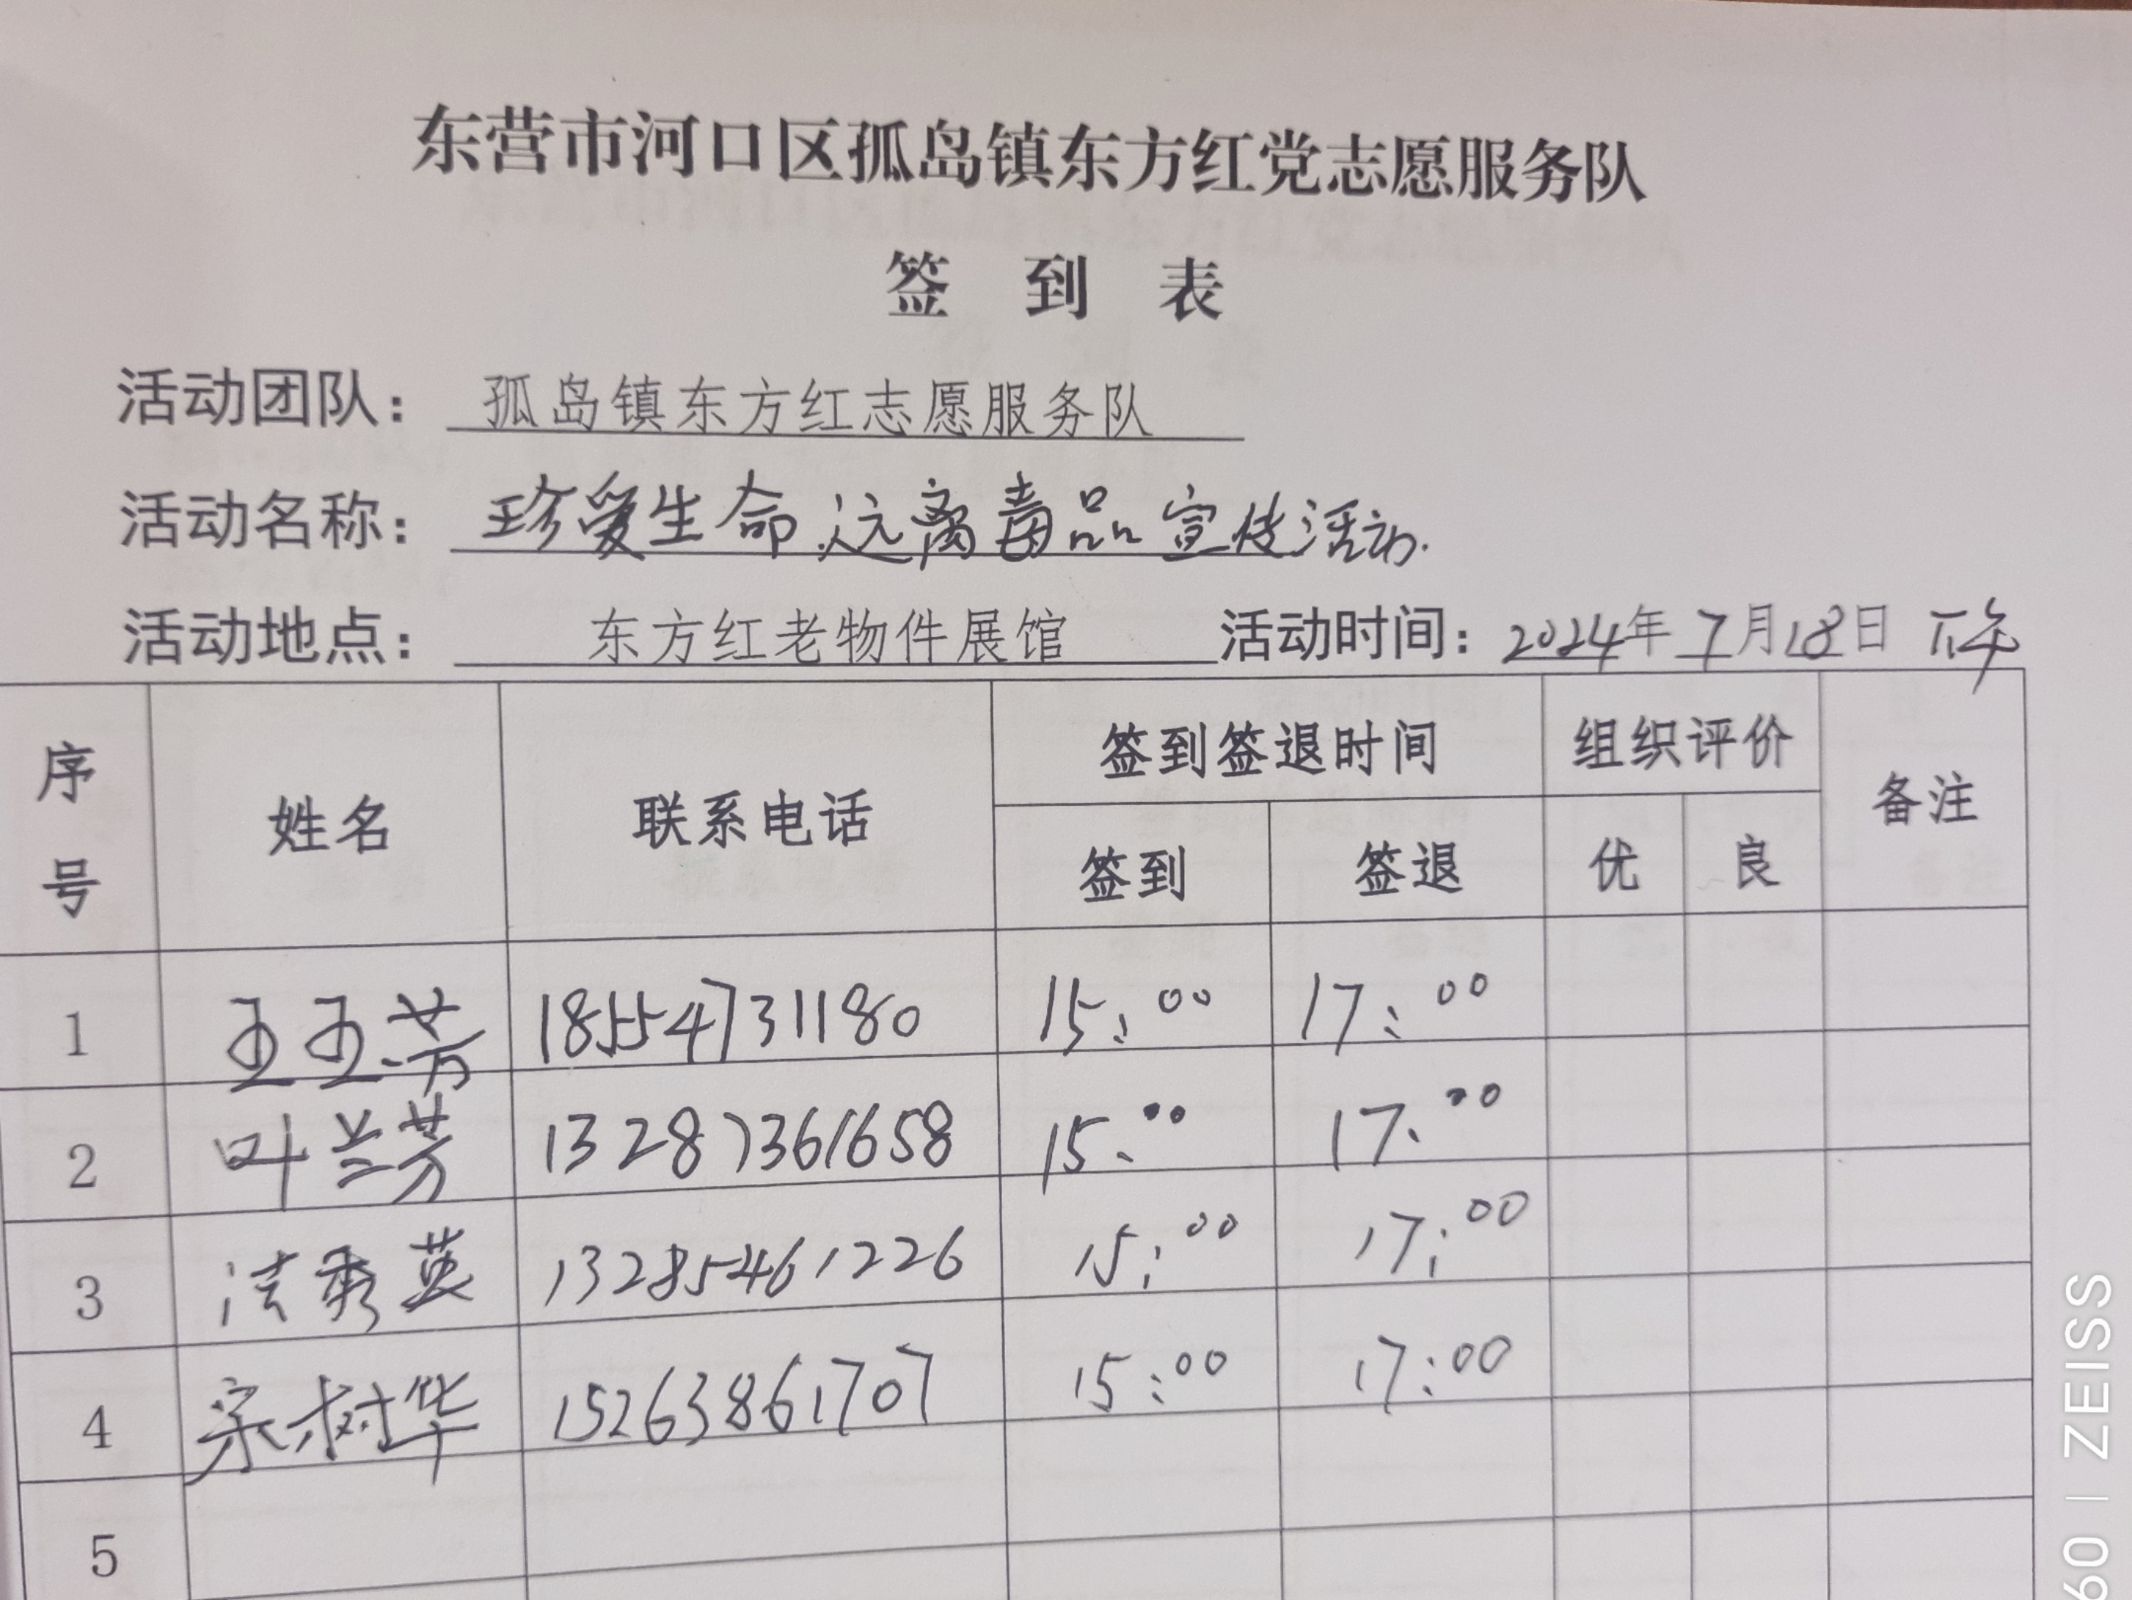 东营市河口区孤岛镇东方红党志愿服务队
签 到 表
活动团队： 孤岛镇东方红志愿服务队
活动名称： 珍爱生命.远离毒品宣传活动.
活动地点： 东方红老物件展馆 活动时间：2024年7月18日 下午
序号 姓名 联系电话 签到签退时间 组织评价 备注
签到 签退 优 良
1 芳 18554731180 15:00 17:00
2 叶兰芳 13287361658 15:00 17:00
3 秀英 13285461226 15:00 17:00
4 宋树华 15263861707 15:00 17:00
5
60 | ZEISS